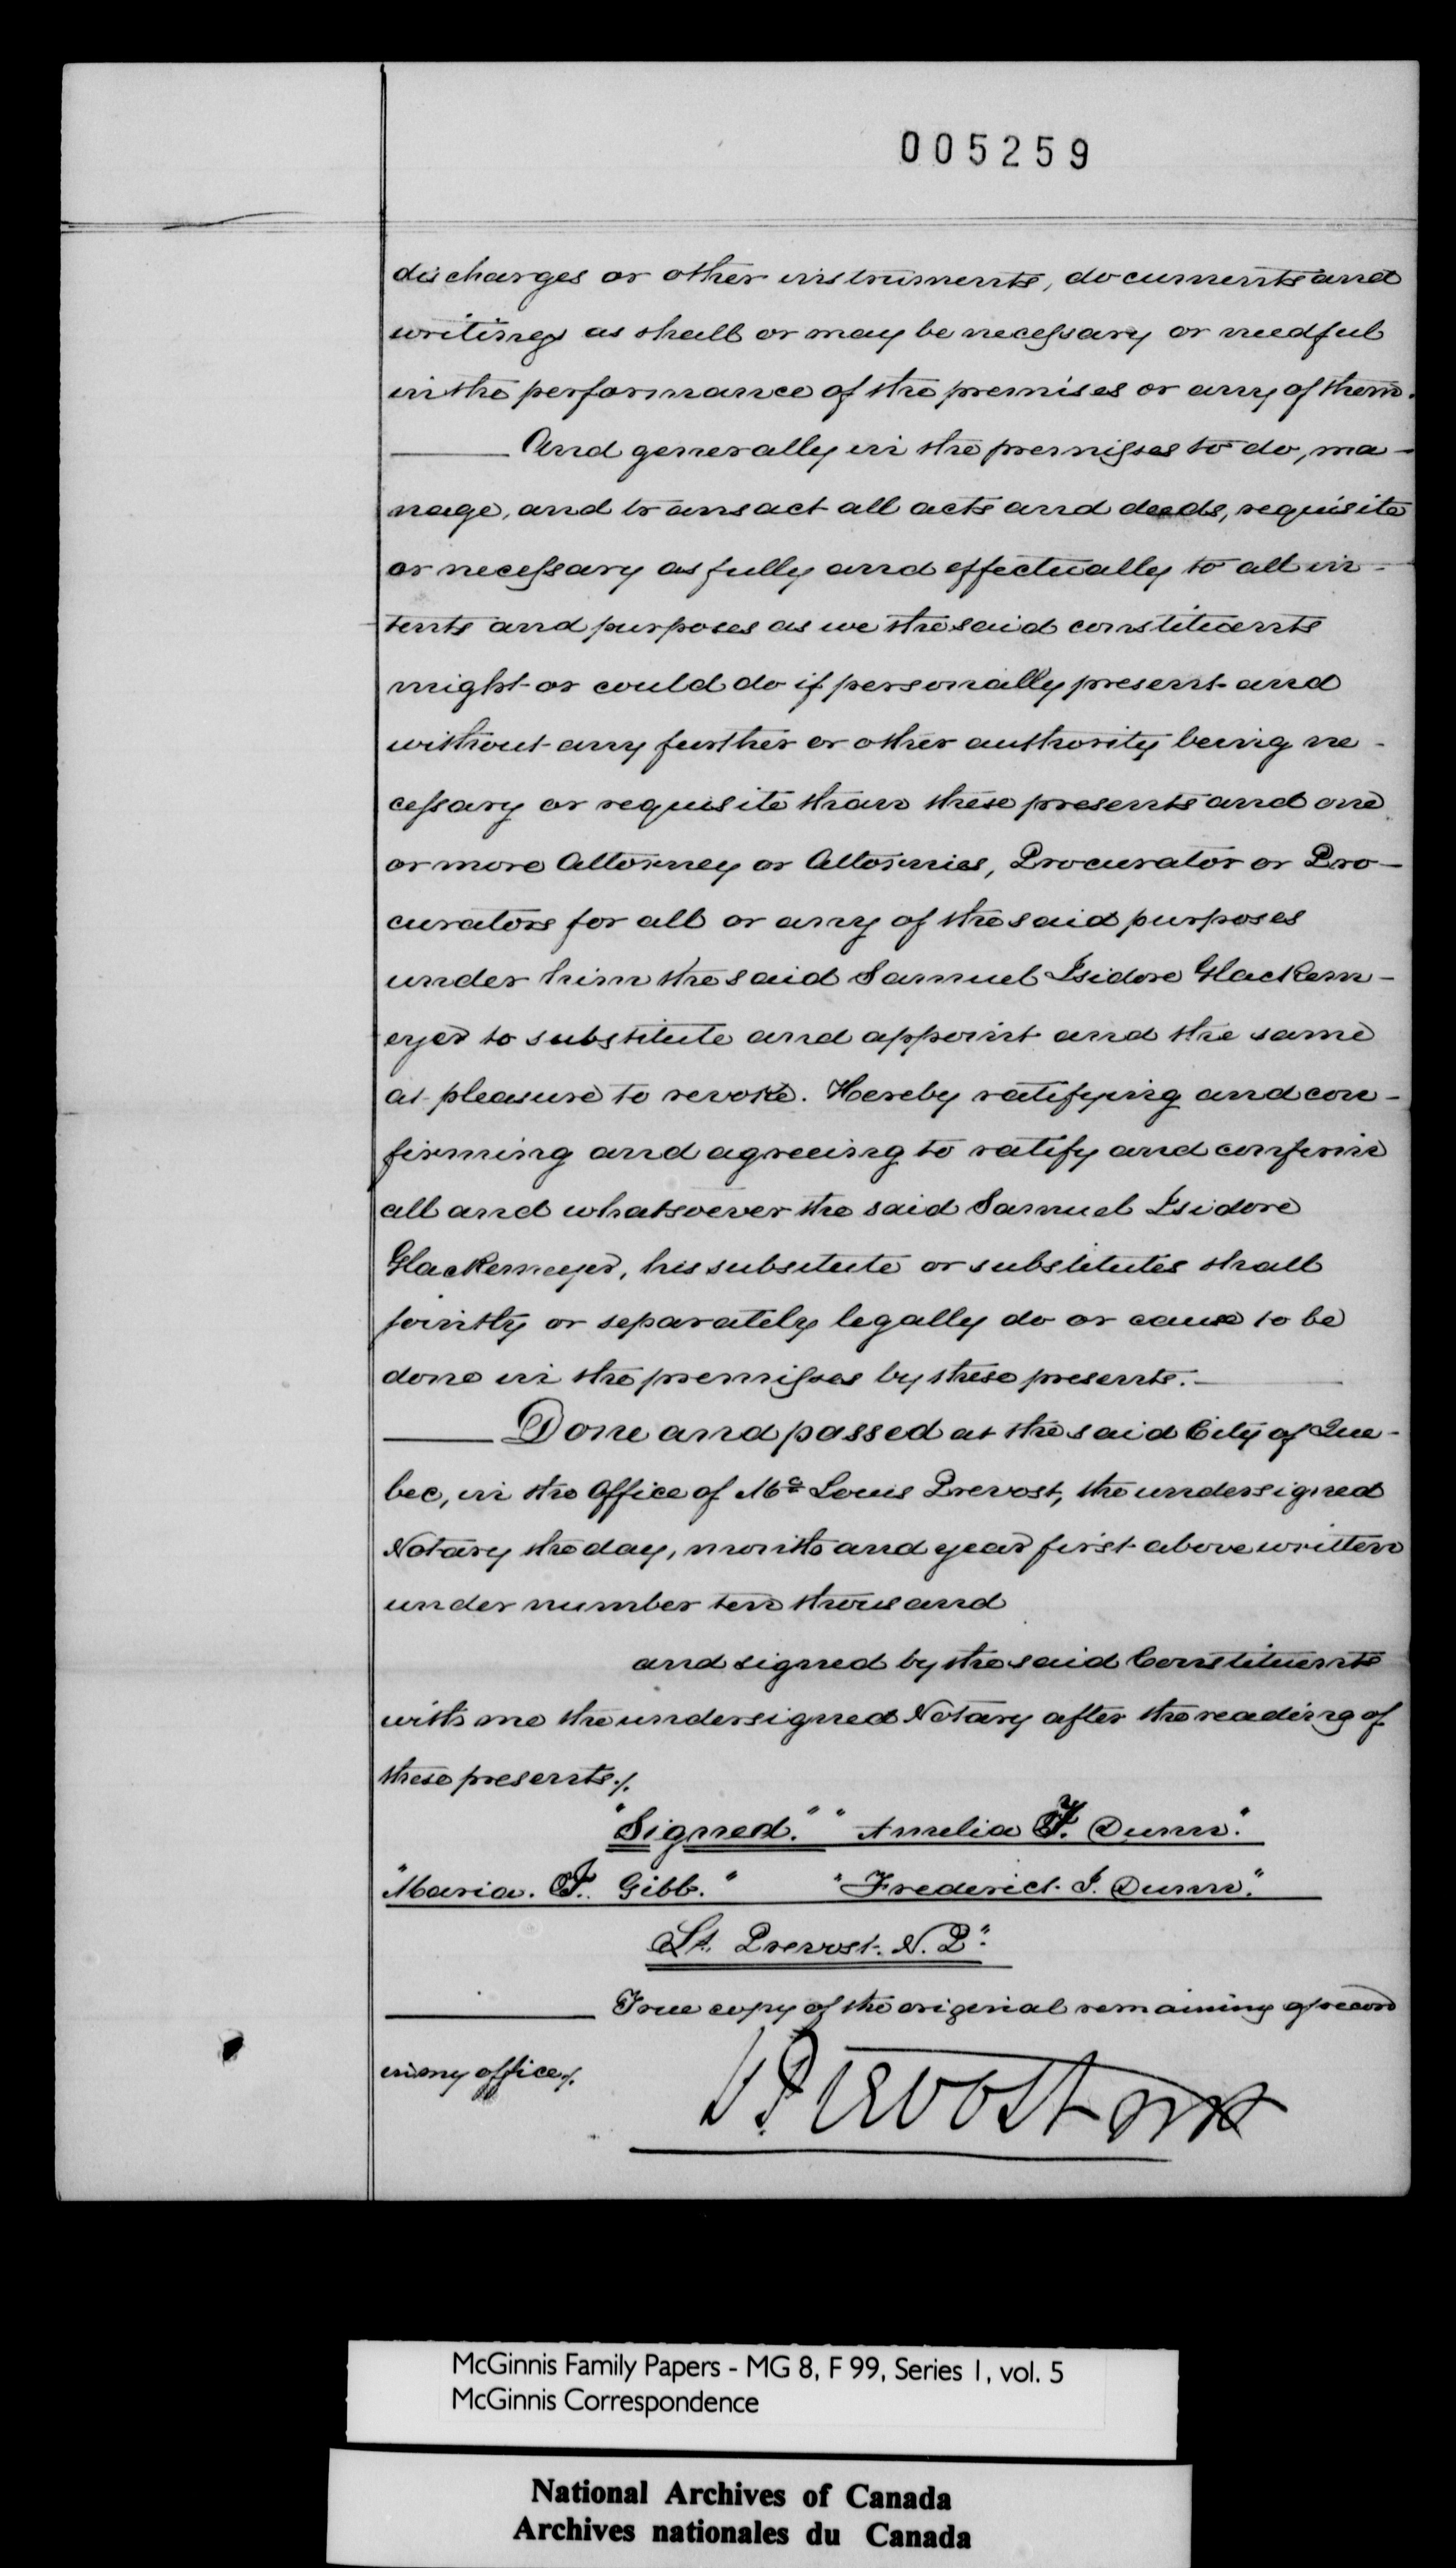 005259
discharges or other instruments, documents and
writings as shall or may be necessary or needful
in the performance of the premises or any of them.
And generally in the premisses to do, ma-
nage, and transact all acts and deeds, requisite
or necessary as fully and effectually to all in-
tents and purposes as we the said constituents
might or could do if personally present and
without any further or other authority being ne-
cessary or requisite than these presents and one
or more Attorney or Attornies, Procurator or Pro-
curators for all or any of the said purposes
under him the said Samuel Isidore Glackem-
eyer to substitute and appoint and the same
at pleasure to revoke. Hereby ratifying and con-
firming and agreeing to ratify and confirm
all and whatsoever the said Samuel Isidore
Glackemeyer, his subsitute or substitutes shall
jointly or separately legally do or cause to be
done in the premisses by these presents.
Done and passed at the said City of Que-
bec, in the Office of Mr Louis Prevost, the undersigned
Notary the day, month and year first above written
under number ten thousand
and signed by the said Constituents
with me the undersigned Notary after the reading of
these presents ./.
"Signed." "Amelia F. Dunn."
"Maria. F. Gibb." "Frederick I. Dunn."
Ls. Prevost. N. P."
True copy of the original remaining of record
in my office ./.
Ls Prevost
McGinnis Family Papers - MG 8, F 99, Series 1, vol. 5
McGinnis Correspondence
National Archives of Canada
Archives nationales du Canada